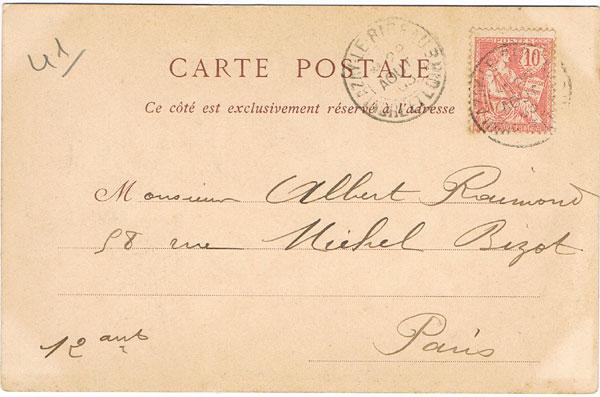 41
CARTE POSTALE
Ce côté est exclusivement réservé à l'adresse
AZAY-LE-RIDEAU
AOUT
INDRE
POSTES
10
Monsieur Albert Raimond
58 rue Michel Bizot
12 arrt
Paris